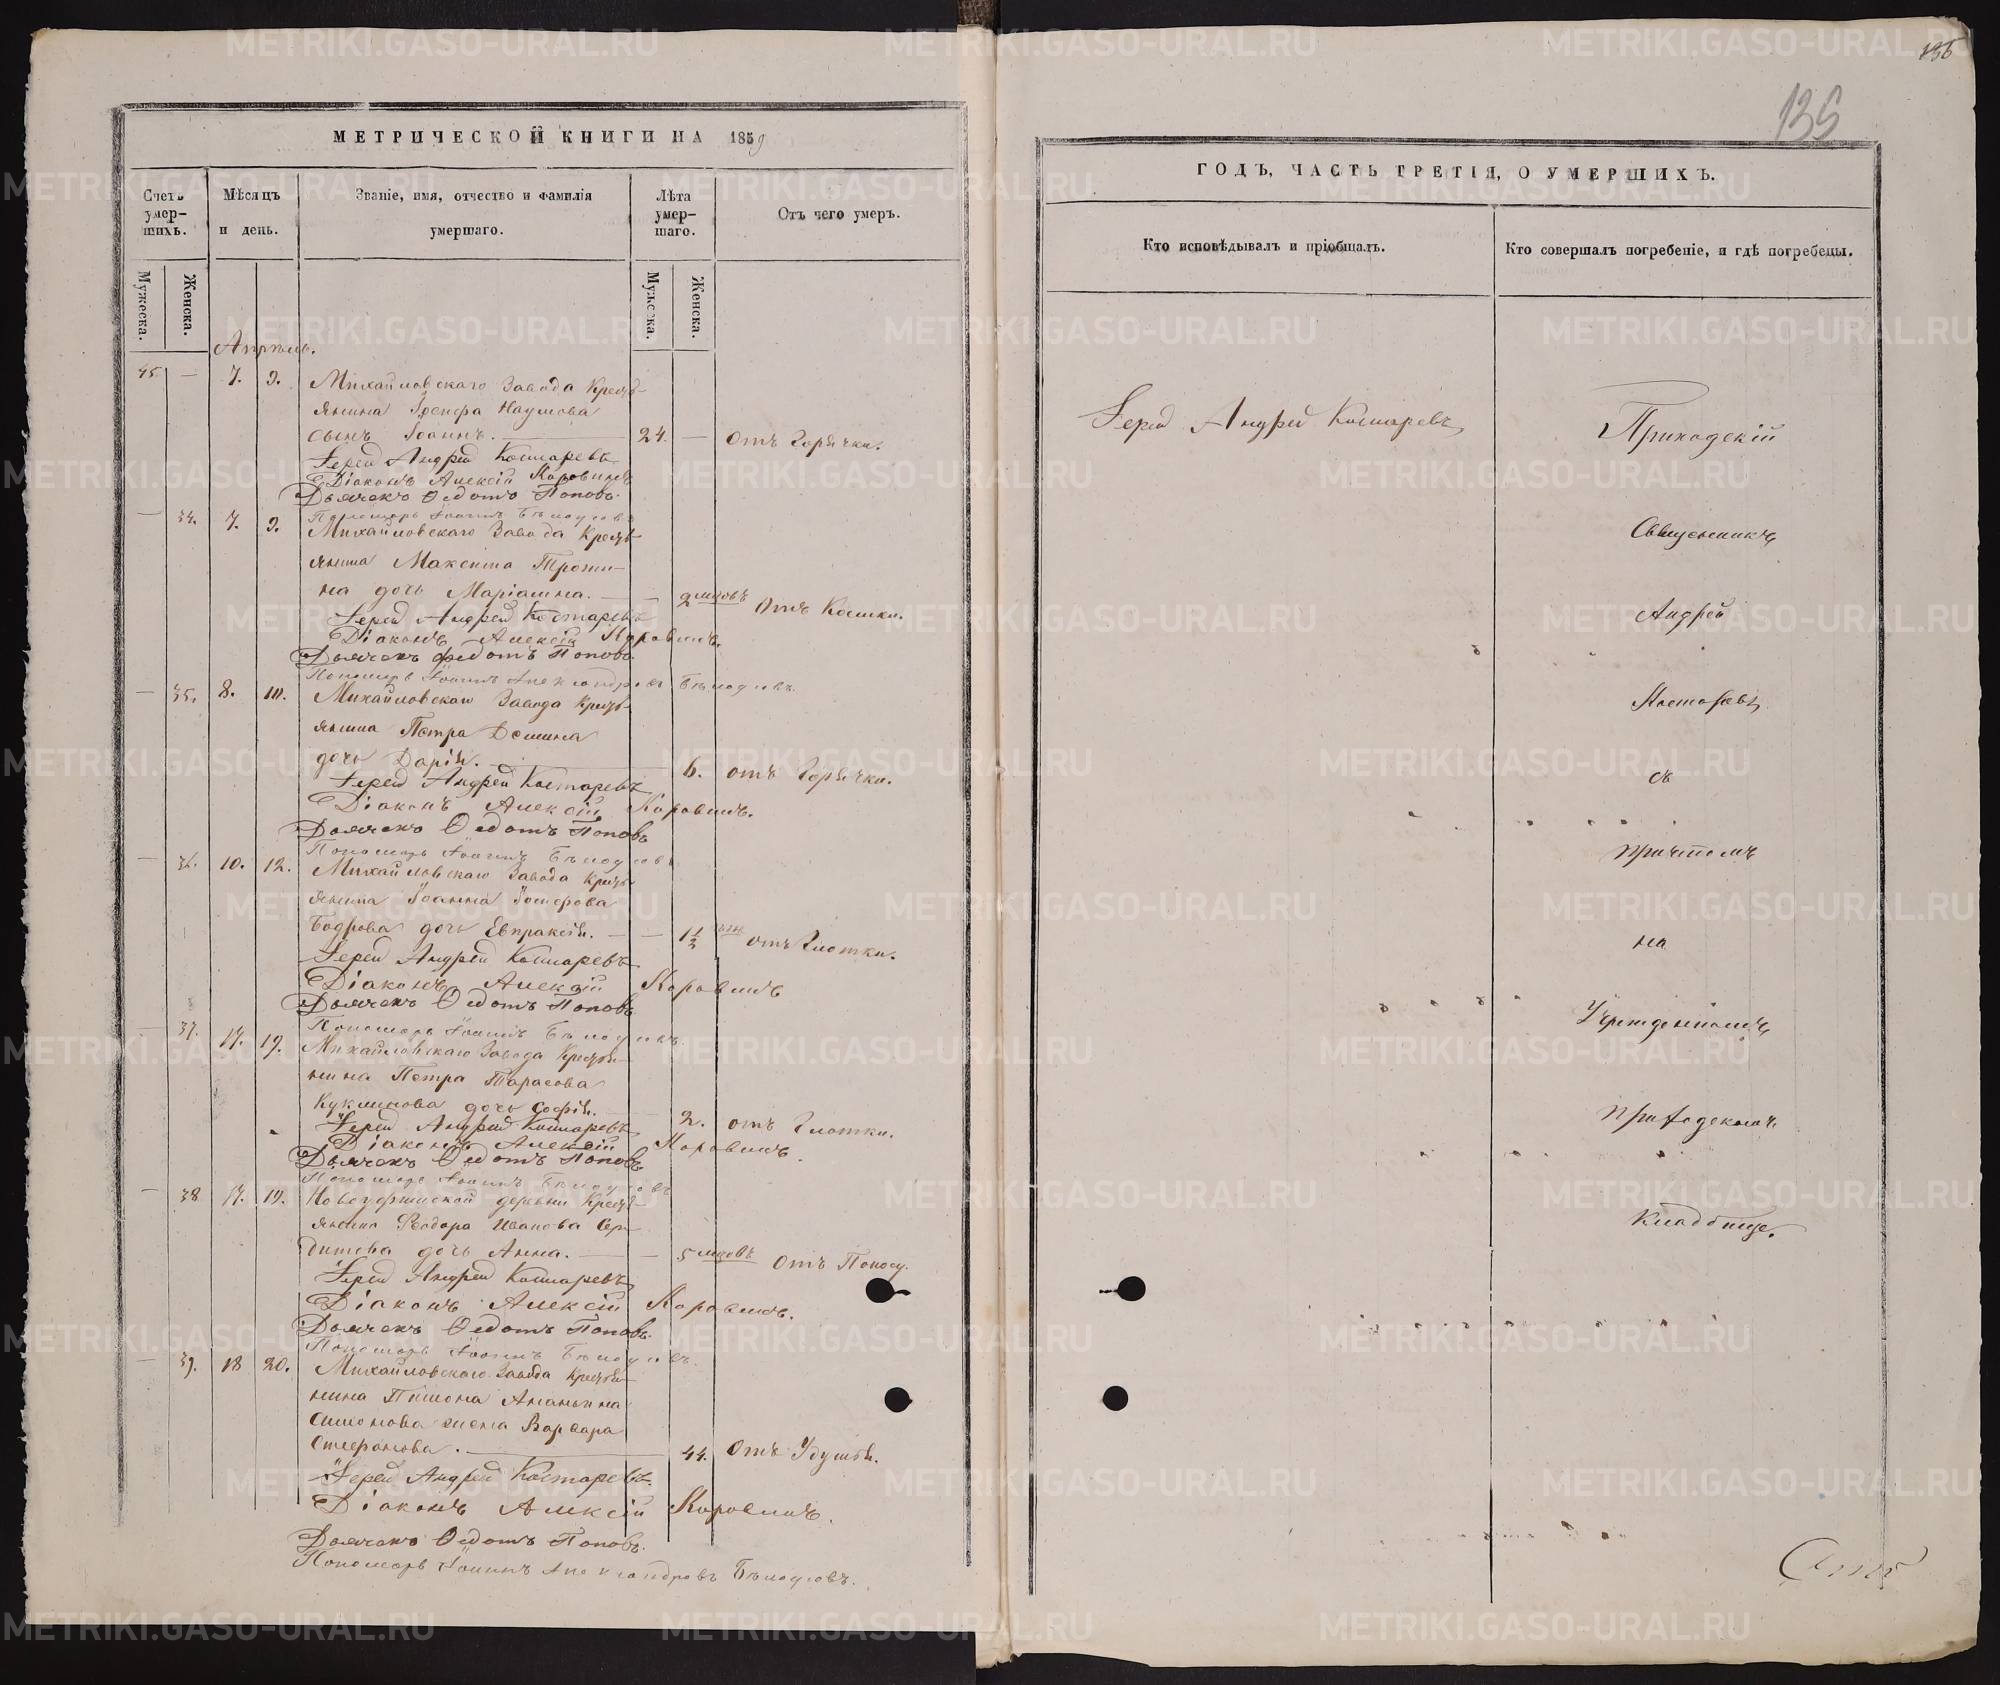 136
136
МЕТРИЧЕСКОЙ КНИГИ НА 1859
Счетъ умер-шихъ.
Мужеска.
Женска.
Мѣсяцъ и день.
Званіе, имя, отчество и фамилія умершаго.
Лѣта умер-шаго.
Мужеска.
Женска.
Отъ чего умеръ.
Апрѣль.
45. — 7. 9. Михайловскаго Завода Кресть-
янина Іосифа Наумова
сынъ Іоаннъ. — 24. — отъ Горячки.
Іерей Андрей Костаревъ
Діаконъ Алексій Коровинъ
Дьячекъ Ѳедотъ Поповъ
Пономарь Іоаннъ Бѣлоусовъ
— 34. 7. 9. Михайловскаго Завода Кресть-
янина Максима
на дочь Маріамна. — — 2 мцовъ Отъ Кашли.
Іерей Андрей Костаревъ
Діаконъ Алексій Коровинъ.
Дьячекъ Ѳедотъ Поповъ
Пономарь Іоаннъ Александровъ Бѣлоусовъ.
— 35. 8. 10. Михайловскаго Завода Кресть-
янина Петра Демина
дочь Дарія. — 6. отъ Горячки.
Іерей Андрей Костаревъ
Діаконъ Алексій Коровинъ.
Дьячекъ Ѳедотъ Поповъ
Пономарь Іоаннъ Бѣлоусовъ
— 36. 10. 12. Михайловскаго Завода Кресть-
янина Іоанна
Бодрова дочь Евпраксія. — — 1 1/2 отъ Глотки.
Іерей Андрей Костаревъ
Діаконъ Алексій Коровинъ
Дьячекъ Ѳедотъ Поповъ
Пономарь Іоаннъ Бѣлоусовъ.
— 37. 17. 19. Михайловскаго Завода Крестья-
нина Петра Тарасова
Куклинова дочь Софія. — 2. отъ Глотки.
Іерей Андрей Костаревъ
Діаконъ Алексій Коровинъ.
Дьячекъ Ѳедотъ Поповъ
Пономарь Іоаннъ Бѣлоусовъ
— 38 17. 19. деревни Кресть-
янина Ѳеодора Иванова Сер-
дитова дочь Анна. — — 5 мцовъ Отъ Поносу.
Іерей Андрей Костаревъ
Діаконъ Алексій Коровинъ.
Дьячекъ Ѳедотъ Поповъ.
Пономарь Іоаннъ Бѣлоусовъ.
— 39. 18 20. Михайловскаго Завода Крестья-
нина Пимона Ананьина
Симонова жена Варвара
Стефанова. — 44. Отъ Удушья.
Іерей Андрей Костаревъ.
Діаконъ Алексій Коровинъ.
Дьячекъ Ѳедотъ Поповъ.
Пономарь Іоаннъ Александровъ Бѣлоусовъ.
ГОДЪ, ЧАСТЬ ТРЕТІЯ, О УМЕРШИХЪ.
Кто исповѣдывалъ и пріобщалъ.
Кто совершалъ погребеніе, и гдѣ погребены.
Іерей Андрей Костаревъ
Приходскій
Священникъ
Андрей
Костаревъ
съ
причтомъ
на
Учрежденномъ
приходскомъ
Кладбище.
METRIKI.GASO-URAL.RU